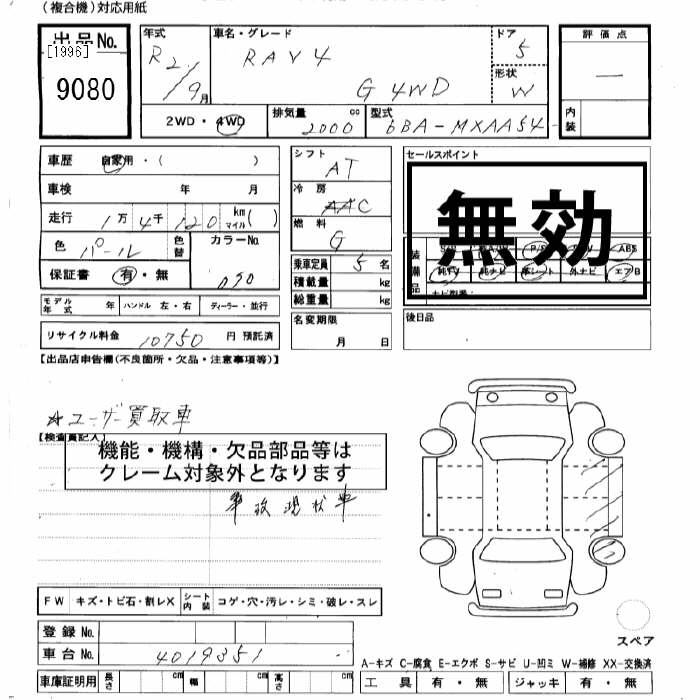 （複合機）対応用紙
出品No.
[1996]
9080
年式
R2/9月
車名・グレード
RAV4
G 4WD
ドア
5
形状
W
評価点
一
内装
2WD・4WD
排気量
2000 cc
型式
6BA-MXAA54
車歴 自家用・（ ）
車検 年 月
走行 1万 4千 120 km マイル( )
色 パール 色替
カラーNo.
090
保証書 有・無
シフト
AT
冷房
AAC
燃料
G
乗車定員 5名
積載量 kg
総重量 kg
名変期限
月 日
セールスポイント
無効
装備品
P/S ABS
純TV 純ナビ 革シート 外ナビ エアB
ナビ型番:
後日品
モデル年式 年 ハンドル 左・右 ディーラー・並行
リサイクル料金 10750 円 預託済
【出品店申告欄（不良箇所・欠品・注意事項等）】
☆ユーザー買取車
【検査員記入】
機能・機構・欠品部品等は
クレーム対象外となります
事故現状車
FW キズ・トビ石・割レX シート内装 コゲ・穴・汚レ・シミ・破レ・スレ
登録No.
車台No. 4019351
車庫証明用 長さ cm 幅 cm 高さ cm
スペア
A-キズ C-腐食 E-エクボ S-サビ U-凹ミ W-補修 XX-交換済
工具 有・無 ジャッキ 有・無